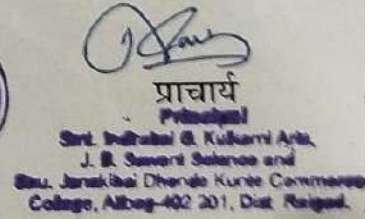 प्राचार्य
Principal
Smt. Indirabai G. Kulkarni Arts,
J. B. Sawant Science and
Sau. Janakibai Dhondo Kunte Commerce
College, Alibag-402 201, Dist. Raigad.